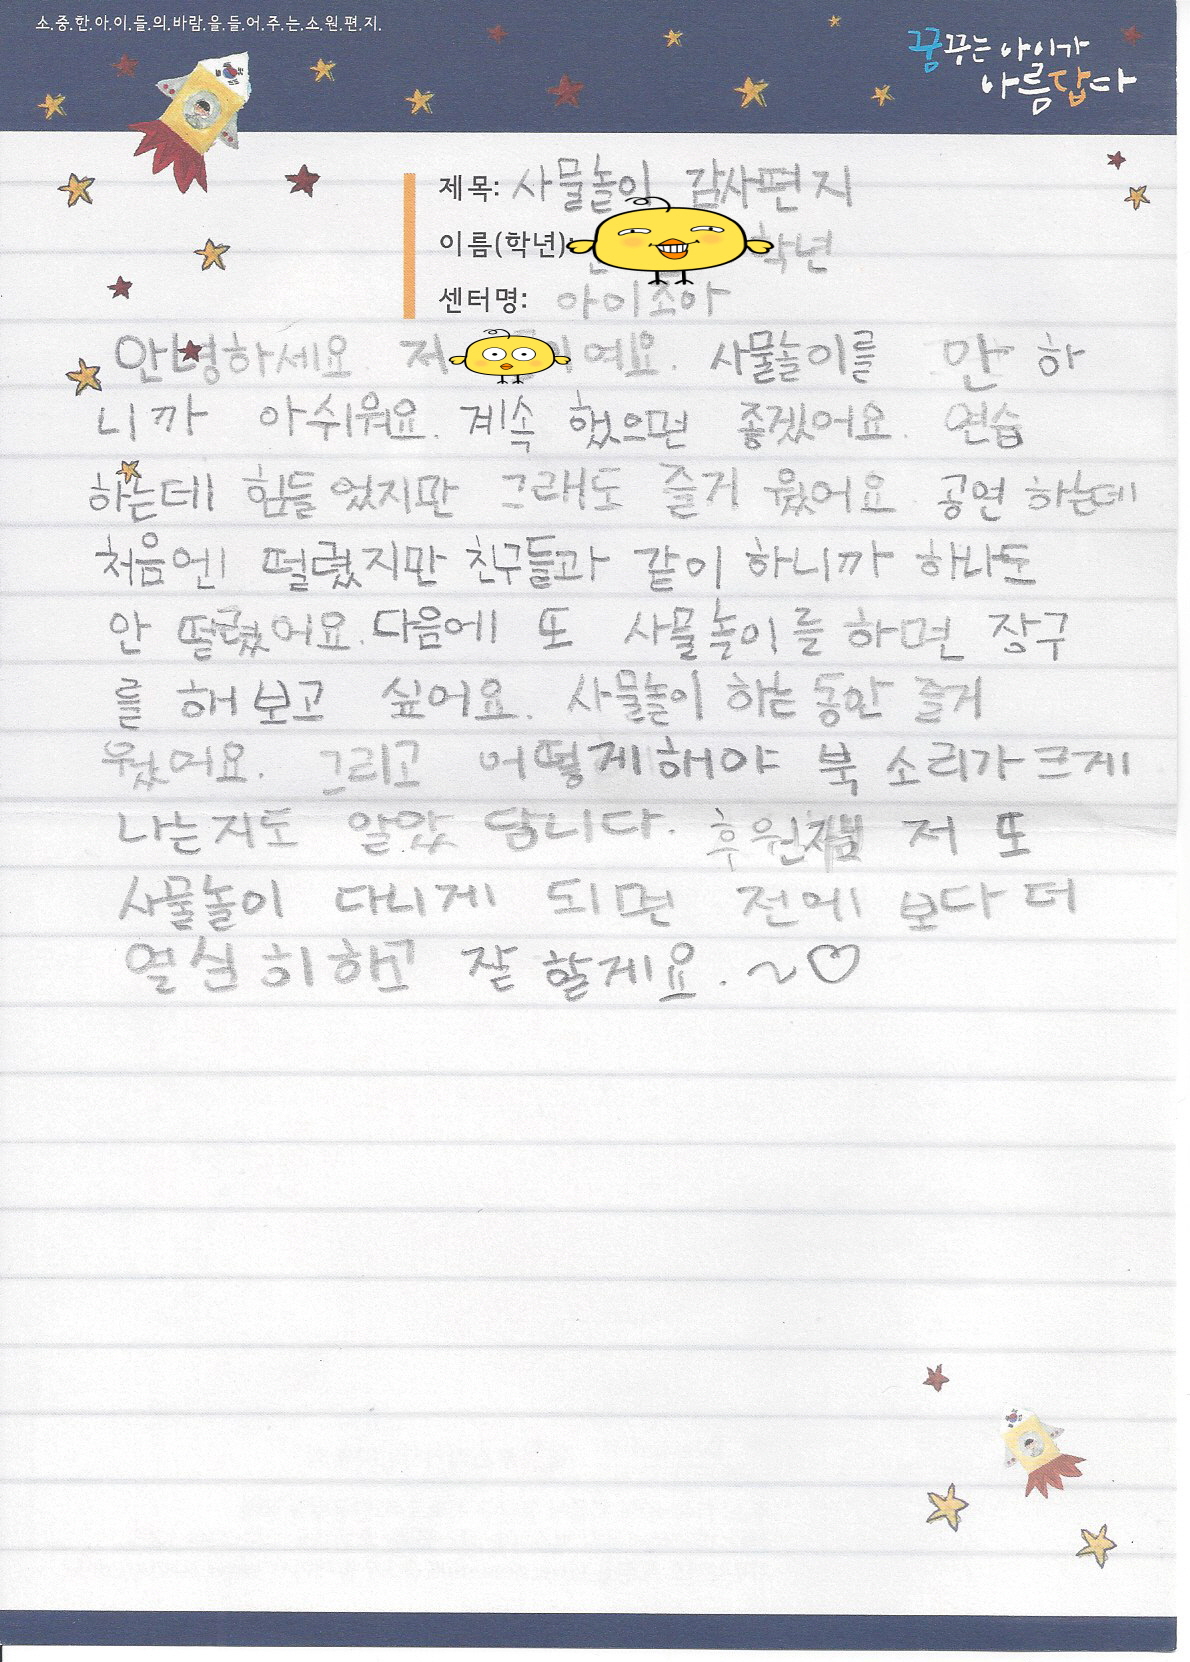 소.중.한.아.이.들.의.바.람.을.들.어.주.는.소.원.편.지.
꿈꾸는 아이가
아름답다
제목: 사물놀이 감사편지
이름(학년): 학년
센터명: 아이조아
안녕하세요. 저 이예요. 사물놀이를 안 하
니까 아쉬워요. 계속 했으면 좋겠어요. 연습
하는데 힘들었지만 그래도 즐거웠어요. 공연 하는데
처음엔 떨렸지만 친구들과 같이 하니까 하나도
안 떨렸어요. 다음에 또 사물놀이를 하면 장구
를 해보고 싶어요. 사물놀이 하는 동안 즐거
웠어요. 그리고 어떻게해야 북 소리가 크게
나는지도 알았 답니다. 후원자님 저 또
사물놀이 다니게 되면 전에 보다 더
열심히하고 잘 할게요. ~♡